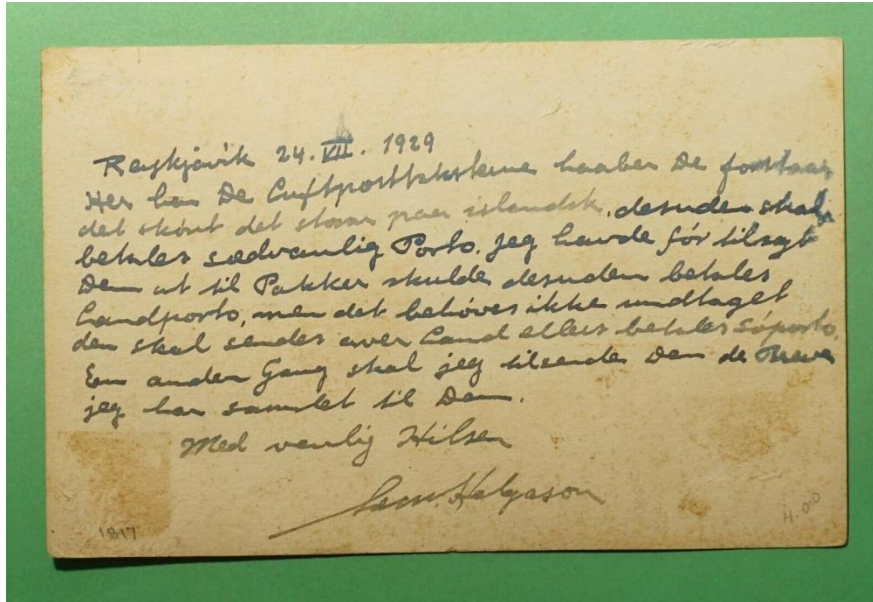 Reykjavik 24. VII. 1929
Her har De Luftposttaksterne haaber De forstaar
det skönt det staar paa islandsk, desuden skal
betales sædvanlig Porto. Jeg havde för tilsagt
Dem at til Pakker skulde desuden betales
Landporto, men det behöves ikke undtaget
den skal sendes over Land ellers betales Söporto.
En anden Gang skal jeg tilsende Dem de Breve
jeg har samlet til Dem.
Med venlig Hilsen
Helgason
1817
4.00